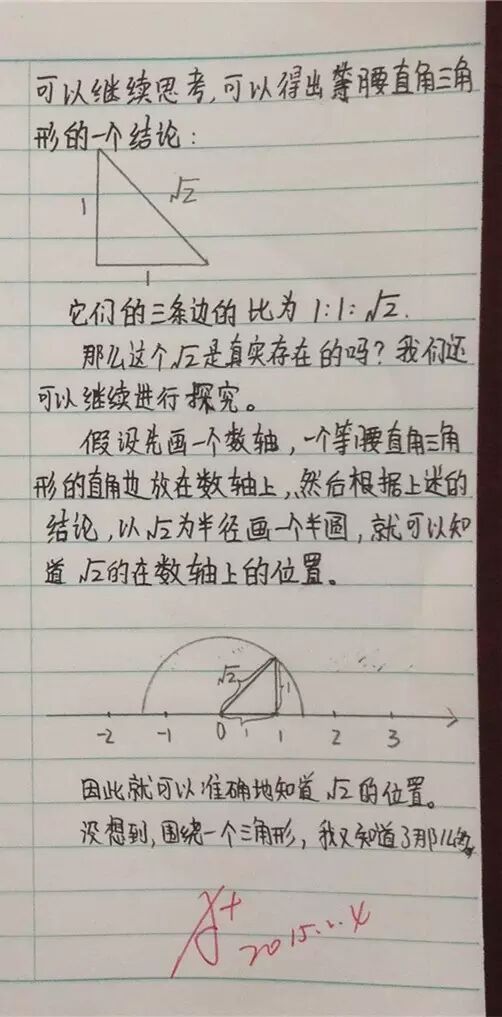 可以继续思考,可以得出等腰直角三角
形的一个结论:
1
√2
1
它们的三条边的比为1:1:√2.
那么这个√2是真实存在的吗?我们还
可以继续进行探究。
假设先画一个数轴,一个等腰直角三角
形的直角边放在数轴上,然后根据上述的
结论,以√2为半径画一个半圆,就可以知
道√2的在数轴上的位置。
√2
1
-2 -1 0 1 1 2 3
因此就可以准确地知道√2的位置。
没想到,围绕一个三角形,我又知道了那么多。
2015.2.4